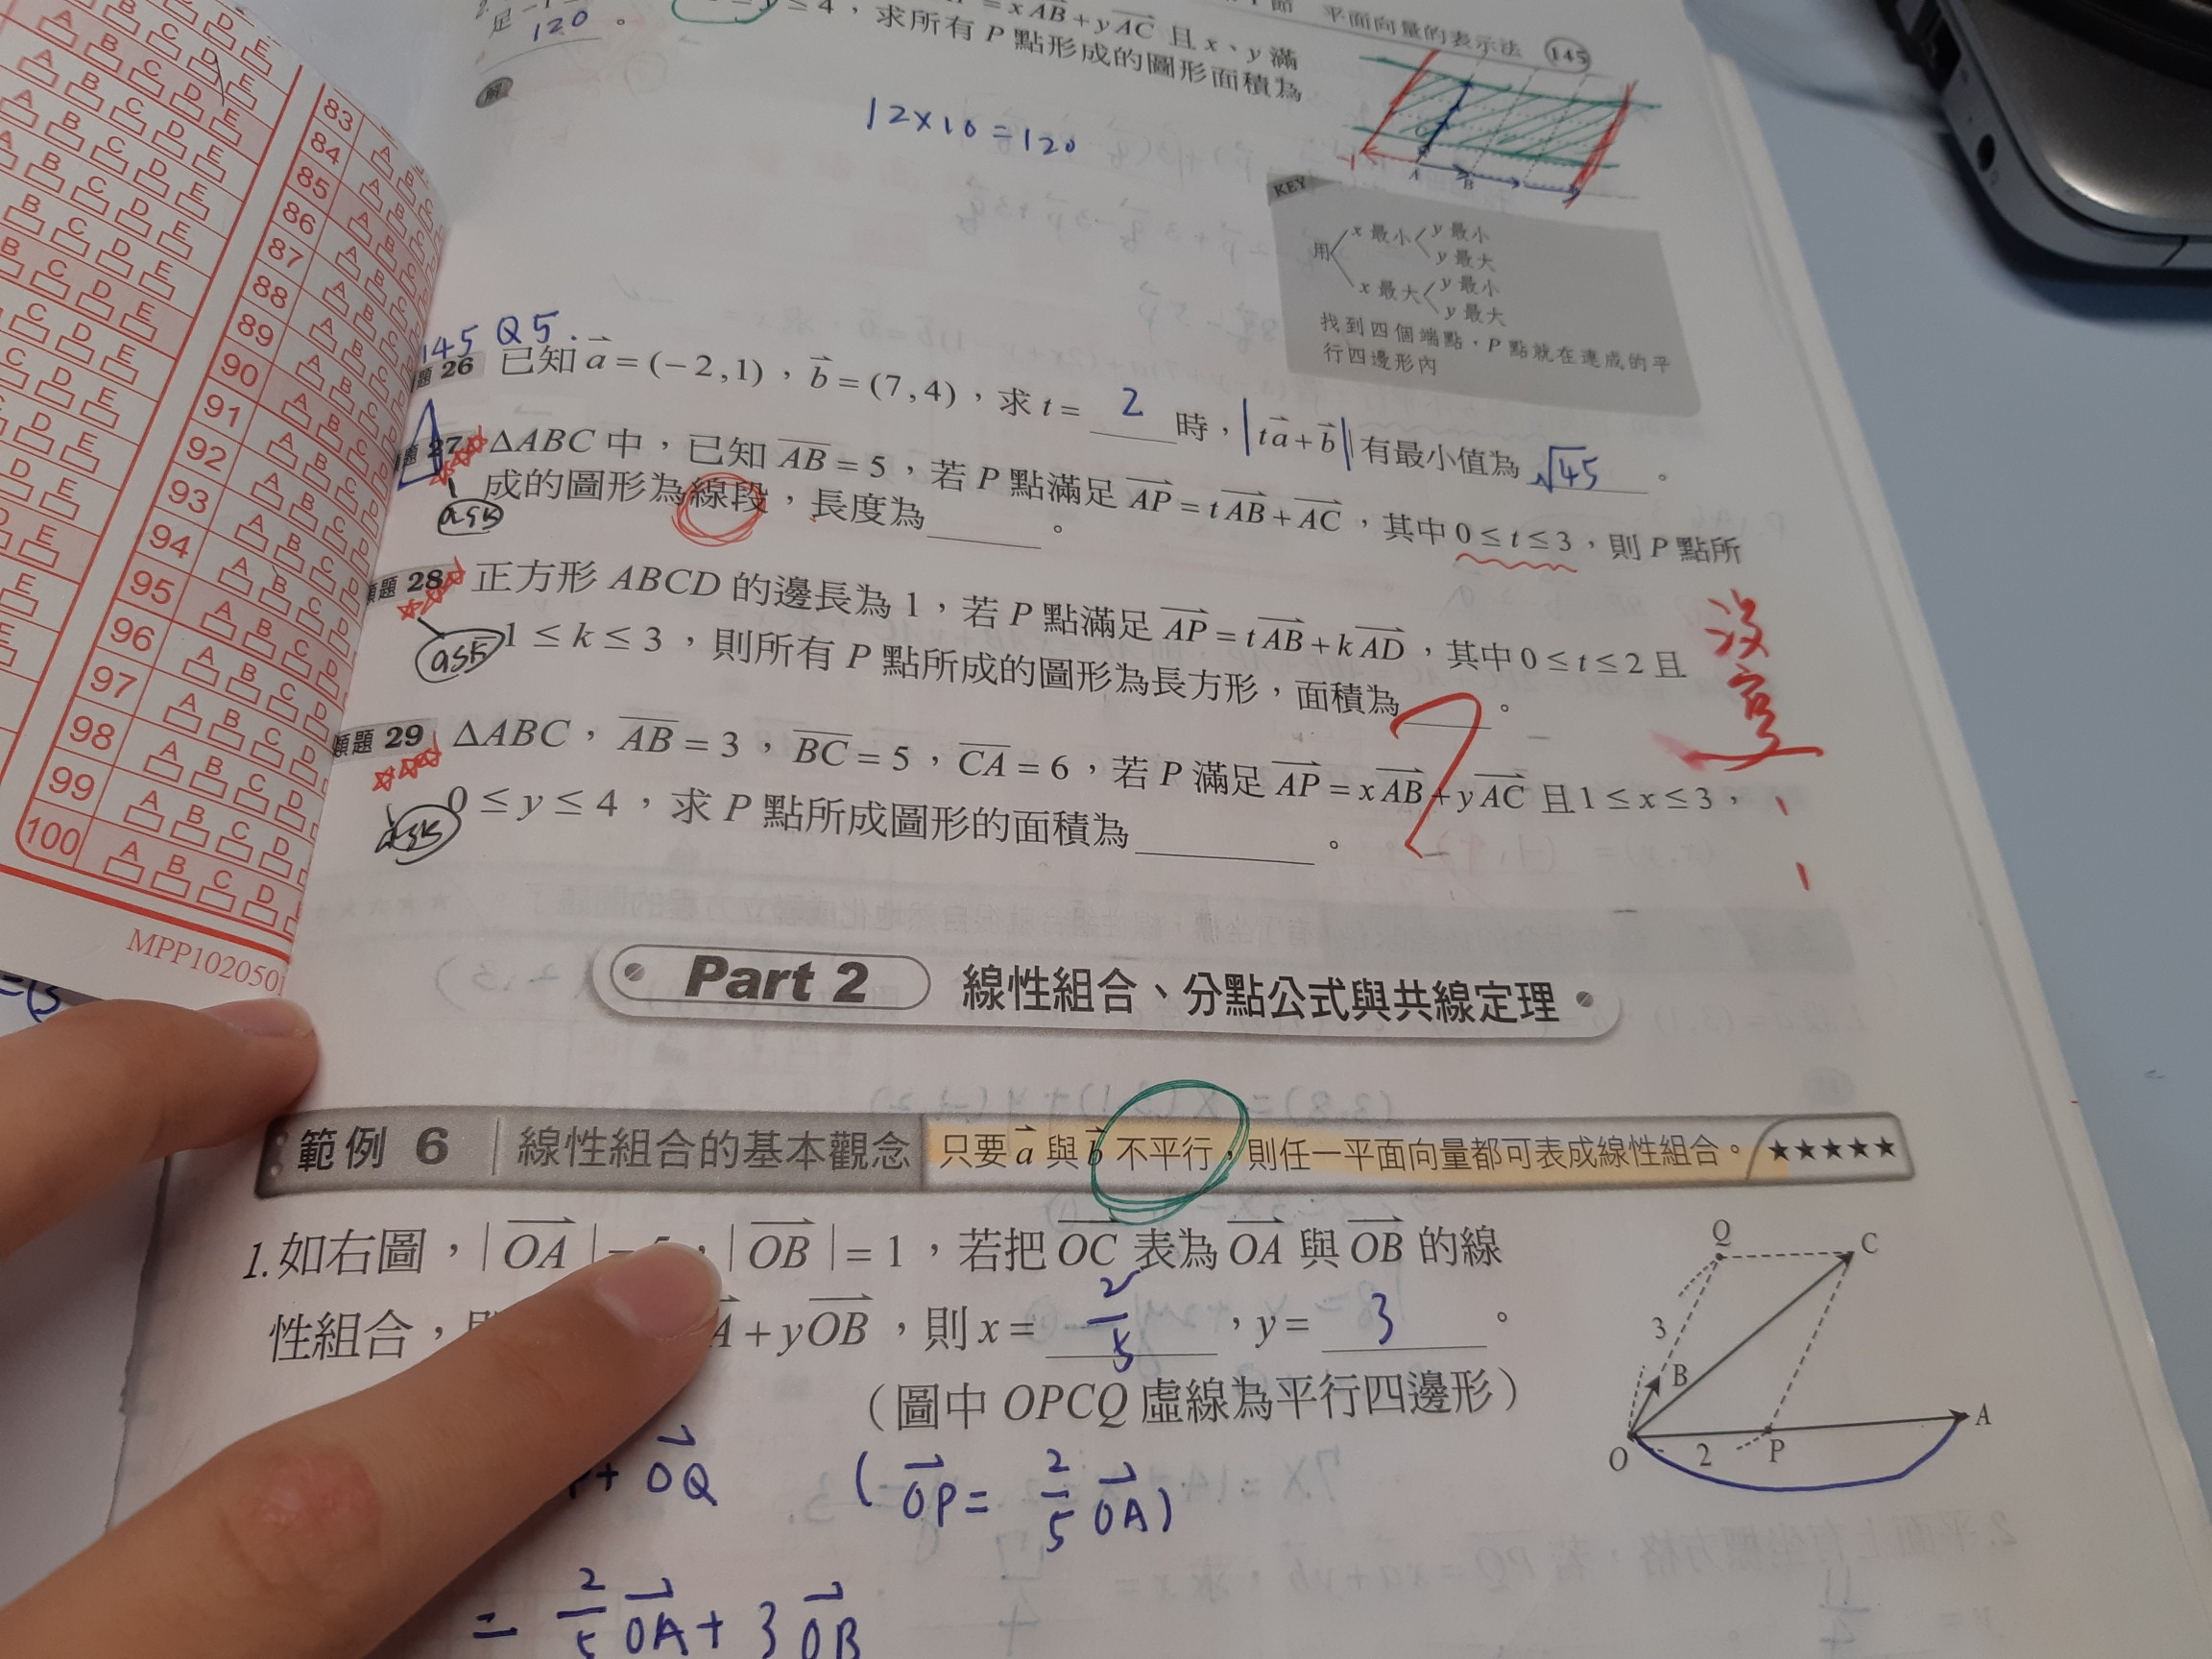 平面向量的表示法 145
= xAB + yAC 且 x、y 滿
足
≤ 4，求所有 P 點形成的圖形面積為
120 。
解
12×10=120
-1
A
B
KEY
用
x 最小
y 最小
y 最大
x 最大
y 最小
y 最大
找到四個端點，P 點就在連成的平
行四邊形內
145 Q5.
題 26 已知 a = (−2,1)，b = (7,4)，求 t = 2 時，|ta + b| 有最小值為 √45 。
題 27 ΔABC 中，已知 AB = 5，若 P 點滿足 AP = tAB + AC，其中 0 ≤ t ≤ 3，則 P 點所
成的圖形為線段，長度為 。
ask
類題 28 正方形 ABCD 的邊長為 1，若 P 點滿足 AP = tAB + kAD，其中 0 ≤ t ≤ 2 且
ask
1 ≤ k ≤ 3，則所有 P 點所成的圖形為長方形，面積為 。
類題 29 ΔABC，AB = 3，BC = 5，CA = 6，若 P 滿足 AP = xAB + yAC 且 1 ≤ x ≤ 3，
ask
0 ≤ y ≤ 4，求 P 點所成圖形的面積為 。
Part 2 線性組合、分點公式與共線定理
範例 6 線性組合的基本觀念 只要 a 與 b 不平行，則任一平面向量都可表成線性組合。 ★★★★★
1.如右圖，|OA| = 5，|OB| = 1，若把 OC 表為 OA 與 OB 的線
性組合， A + yOB，則 x = 2/5，y = 3 。
（圖中 OPCQ 虛線為平行四邊形）
Q
C
3
B
A
O
2
P
+ OQ (OP = 2/5 OA)
= 2/5 OA + 3 OB
83 A
84 A B
85 A B C
86 A B C
87 A B C
88 A B C
89 A B C
90 A B C
91 A B C D
92 A B C D
93 A B C D
94 A B C D
95 A B C D
96 A B C D
97 A B C D
98 A B C D
99 A B C D
100 A B C D
MPP1020501